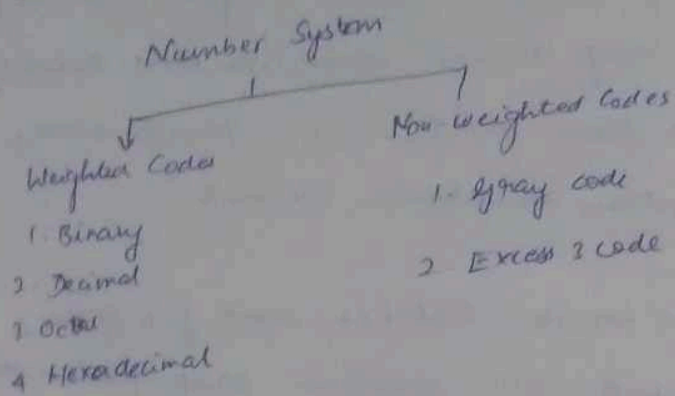 Number System
Weighted Codes
1. Binary
2 Decimal
3 Octal
4 Hexadecimal
Non-weighted Codes
1. Gray code
2 Excess 3 code